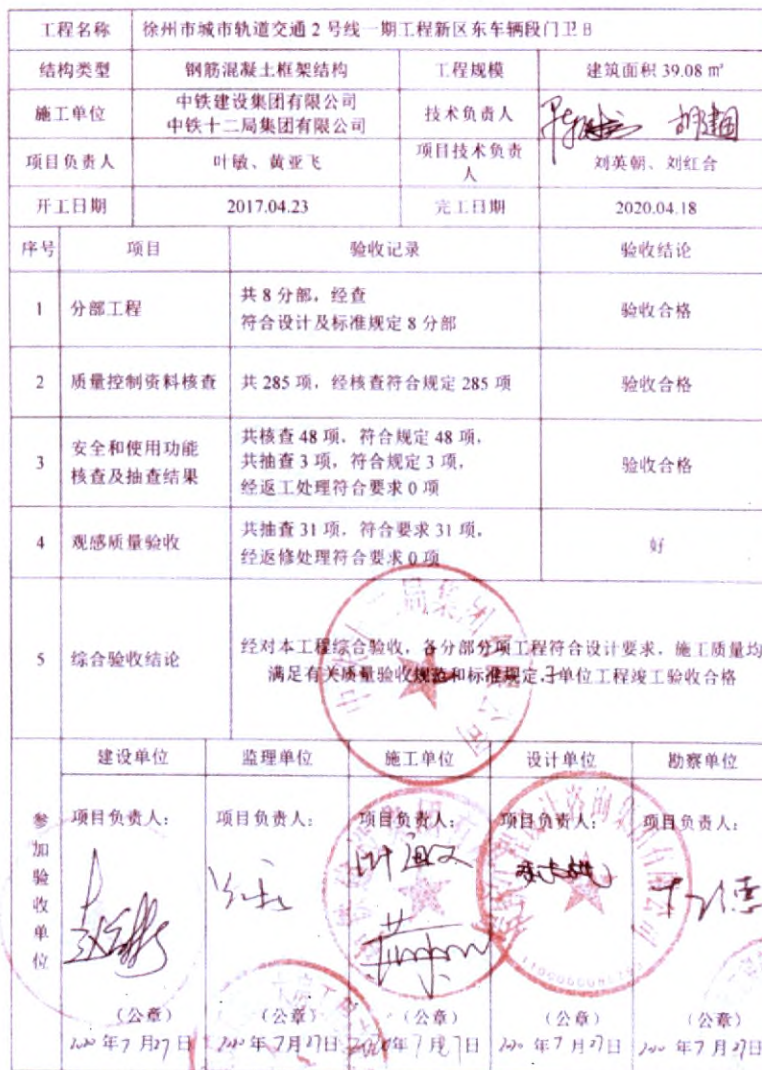 工程名称 徐州市城市轨道交通2号线一期工程新区东车辆段门卫B
结构类型 钢筋混凝土框架结构 工程规模 建筑面积 39.08 ㎡
施工单位 中铁建设集团有限公司 技术负责人
中铁十二局集团有限公司
项目负责人 叶敏、黄亚飞 项目技术负责人 刘英朝、刘红合
开工日期 2017.04.23 完工日期 2020.04.18
序号 项目 验收记录 验收结论
1 分部工程 共8分部，经查 验收合格
符合设计及标准规定8分部
2 质量控制资料核查 共285项，经核查符合规定285项 验收合格
3 安全和使用功能 共核查48项，符合规定48项， 验收合格
核查及抽查结果 共抽查3项，符合规定3项，
经返工处理符合要求0项
4 观感质量验收 共抽查31项，符合要求31项， 好
经返修处理符合要求0项
5 综合验收结论 经对本工程综合验收，各分部分项工程符合设计要求，施工质量均
满足有关质量验收规范和标准规定，单位工程竣工验收合格
参加验收单位
建设单位 监理单位 施工单位 设计单位 勘察单位
项目负责人： 项目负责人： 项目负责人： 项目负责人： 项目负责人：
叶敏
（公章） （公章） （公章） （公章） （公章）
2020年7月27日 2020年7月27日 2020年7月27日 2020年7月27日 2020年7月27日